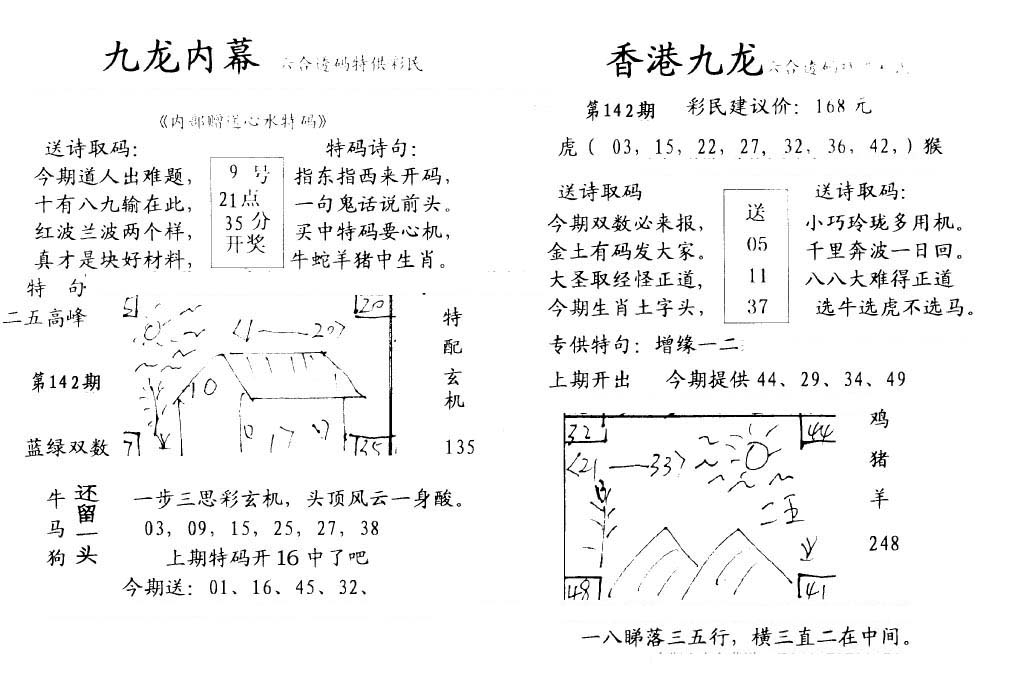 九龙内幕 六合透码特供彩民
《内部赠送心水特码》
送诗取码：
今期道人出难题，
十有八九输在此，
红波兰波两个样，
真才是块好材料，
9 号
21点
35分
开奖
特码诗句：
指东指西来开码，
一句鬼话说前头。
买中特码要心机，
牛蛇羊猪中生肖。
特 句
二五高峰
第142期
蓝绿双数
20
〈1——20〉
10
17
35
特
配
玄
机
135
牛
马
狗
还
留
一
头
一步三思彩玄机，头顶风云一身酸。
03，09，15，25，27，38
上期特码开16中了吧
今期送：01、16、45、32、
香港九龙 六合透码
第142期 彩民建议价：168元
虎（ 03，15，22，27，32，36，42，）猴
送诗取码
今期双数必来报，
金土有码发大家。
大圣取经怪正道，
今期生肖土字头，
送
05
11
37
送诗取码：
小巧玲珑多用机。
千里奔波一日回。
八八大难得正道
选牛选虎不选马。
专供特句：增缘一二
上期开出 今期提供44、29、34、49
32
44
〈21——33〉
二五
48
41
鸡
猪
羊
248
一八睇落三五行，横三直二在中间。